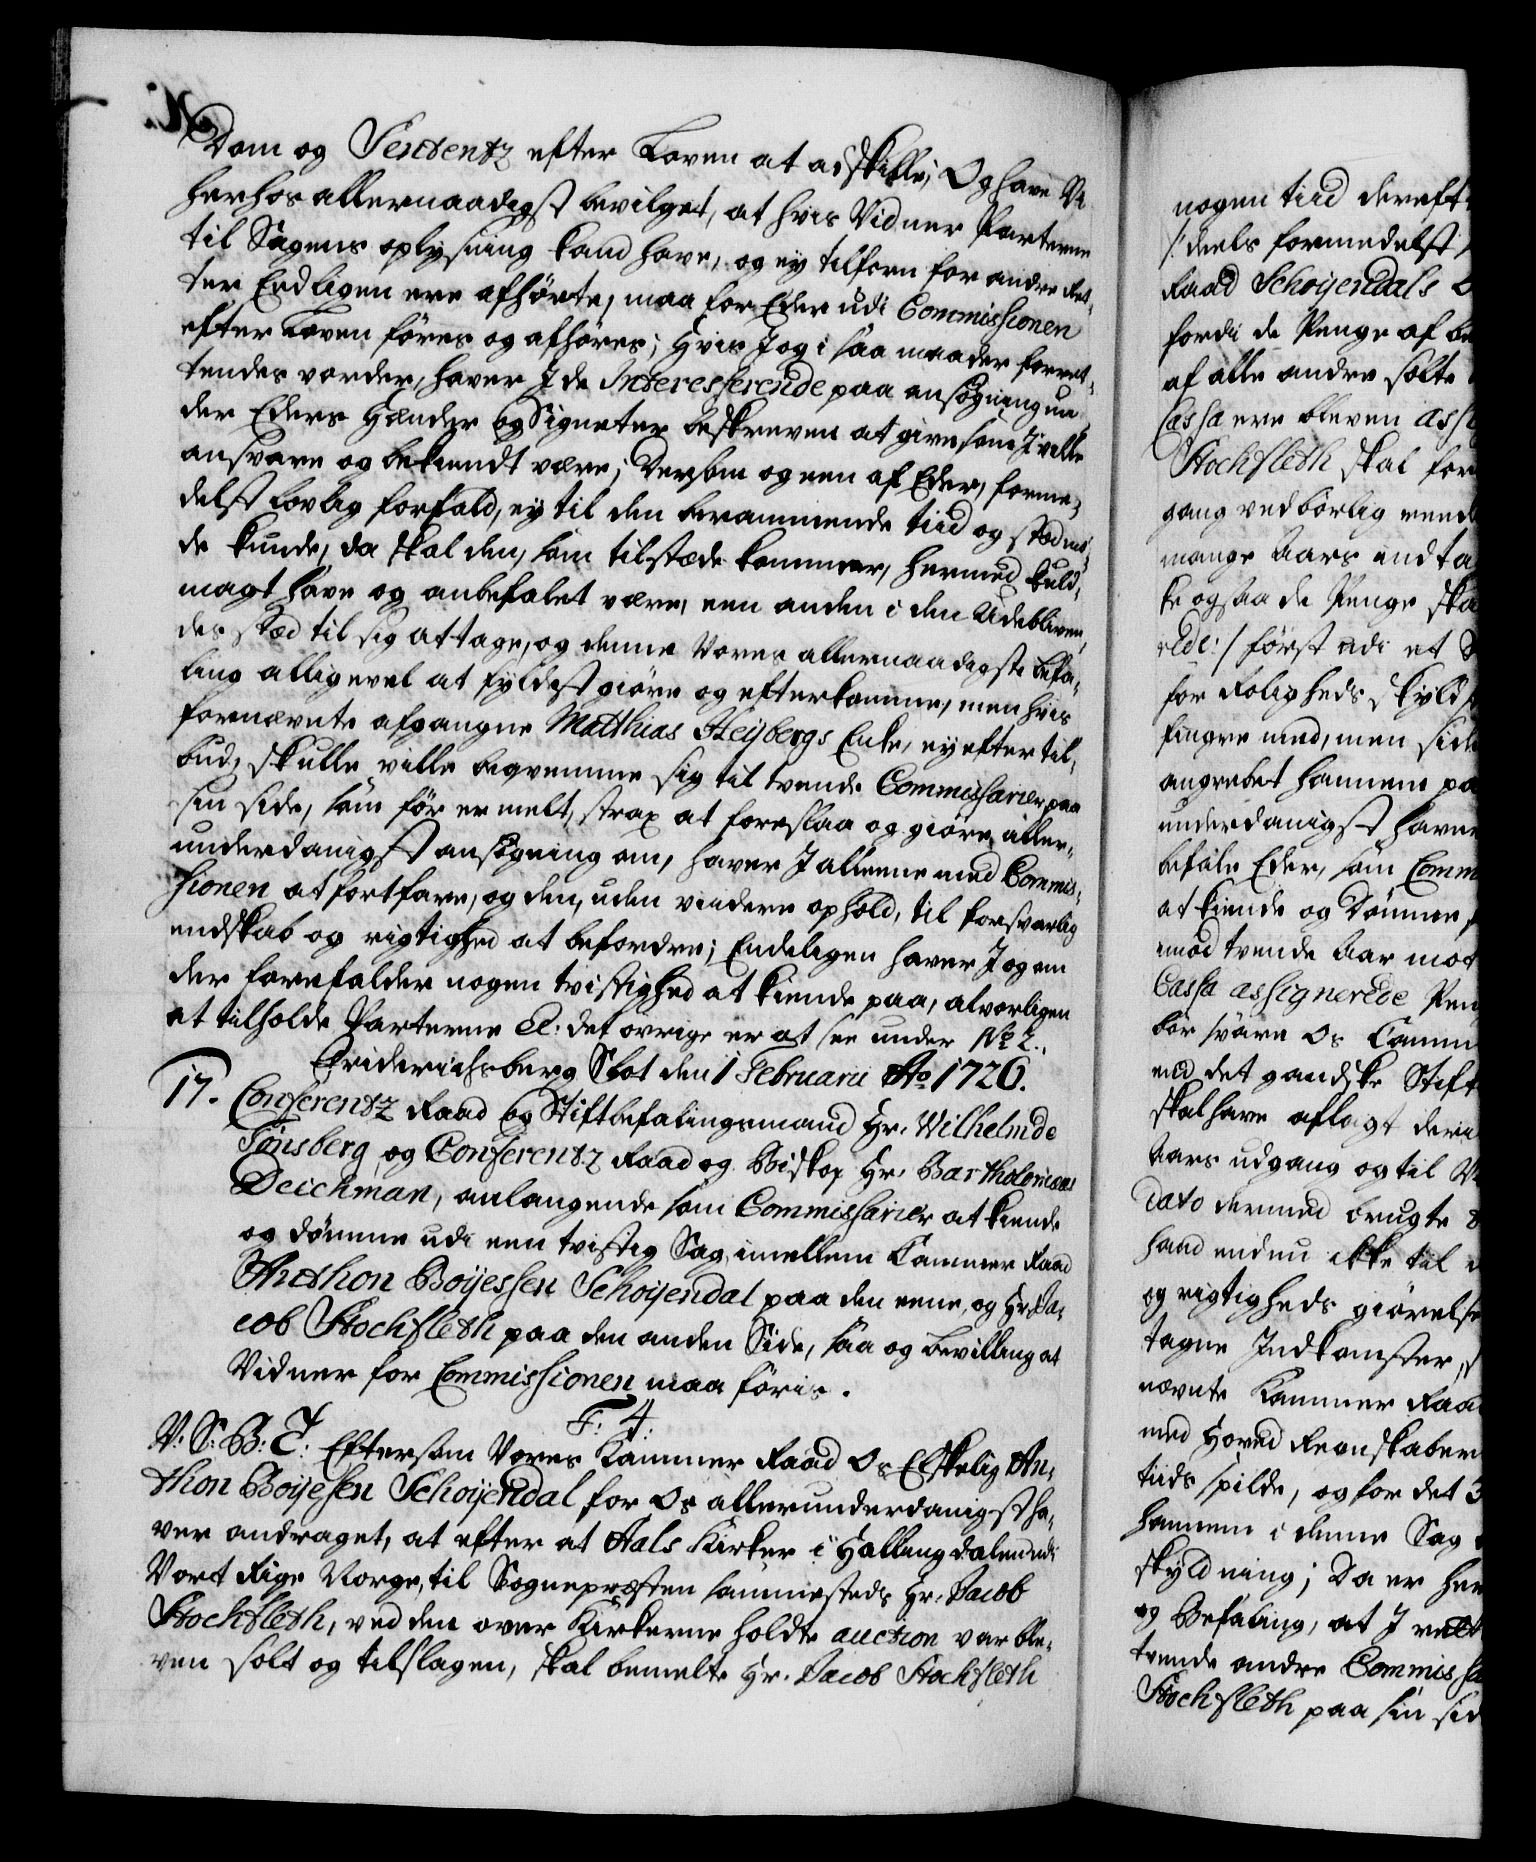 Dom og Sentenz efter Loven at adskille; Og have Vi
herhos allernaadigst bevilget, at hvis Vidner Parterne
til Sagens oplysning kand have, og ey tilforn for andre Ret-
ter Endligen ere afhørte, maa for Eder udi Commissionen
efter Loven føres og afhøres; Hvis I og i saa maader forret-
tendes vorder, haver I de Interesserende paa ansøgning un-
der Eders Hænder og Signeter beskreven at give som I ville
ansvare og bekiendt være; Dersom og een af Eder, forme-
delst lovlig forfald, ey til den berammende tiid og stæd mø-
de kunde, da skal den, som tilstæde kommer, hermed fuld-
magt have og anbefalet være, een anden i den Udebliven-
des stæd til sig at tage, og denne Vores allernaadigste befa-
ling alligevel at fyldestgiøre og efterkomme, men hvis
fornævnte afgangne Matthias Heybergs Enke, ey efter til-
bud, skulle ville beqvemme sig til tvende Commissarier paa
sin side, som før er melt, strax at foreslaa og giøre aller-
underdanigst ansøgning om, haver I alleene med Commis-
sionen at fortfare, og den, uden videre ophold, til forsvarlig
endskab og rigtighed at befordre; Endeligen haver I og om
der forefalder nogen tvistighed at kiende paa, alvorligen
at tilholde Parterne &c: det øvrige er at see under No 2.
Friderichsberg Slot den 1 Februarii Ao 1726.
17. Conferentz Raad og Stiftbefalingsmand Hr. Wilhelm de
Tønsberg, og Conferentz Raad og Biskop Hr. Bartholomæus
Deichman, anlangende som Commissarier at kiende
og dømme udi een tvistig Sag imellem Cammer Raad
Anthon Boyessen Schoyendal paa den eene, og Hr. Ja-
cob Stochfleth paa den anden Side, saa og bevilling at
Vidner for Commissionen maa føris.
F: 4:
V: S: B: T: Eftersom Vores Kammer Raad Os Elskelig An-
thon Boyesen Schoyendal for Os allerunderdanigst ha-
ver andraget, at efter at Aals Kirker i Hallingdalen udi
Vort Rige Norge, til Sognepræsten sammesteds Hr. Jacob
Stochfleth, ved den over Kirkerne holdte auction var ble-
ven solt og tilslagen, skal bemelte Hr. Jacob Stochfleth
nogen tiid dereft
/: deels formedelst
Raad Schoyendals
fordi de Penge af
af alle andre solte
Cassa ere bleven
Stochfleth skal for
gang ved børlig
mange Aars
ke ogsaa de Penge
rede :/ først udi et
for Roligheds skyld
fingre med, men side
angrebet hannem pa
underdanigst haver
befale Eder, som Comm
at kiende og Dømme
imod tvende Aar
Cassa assignerede Pen
bør svare Os
end det gandske Stift
skal have aflagt
Aars udgang og til
dato dermed brugte
hand endnu ikke til
og rigtigheds giørelse
tagne Indkomster,
nævnte Kammer Raad
med Hoved Regnskaber
tiids spilde, og for det 3
hannem i denne Sag
skyldning; Da er
og Befaling, at I
tvende andre Commissa
Stochfleth paa sin sid